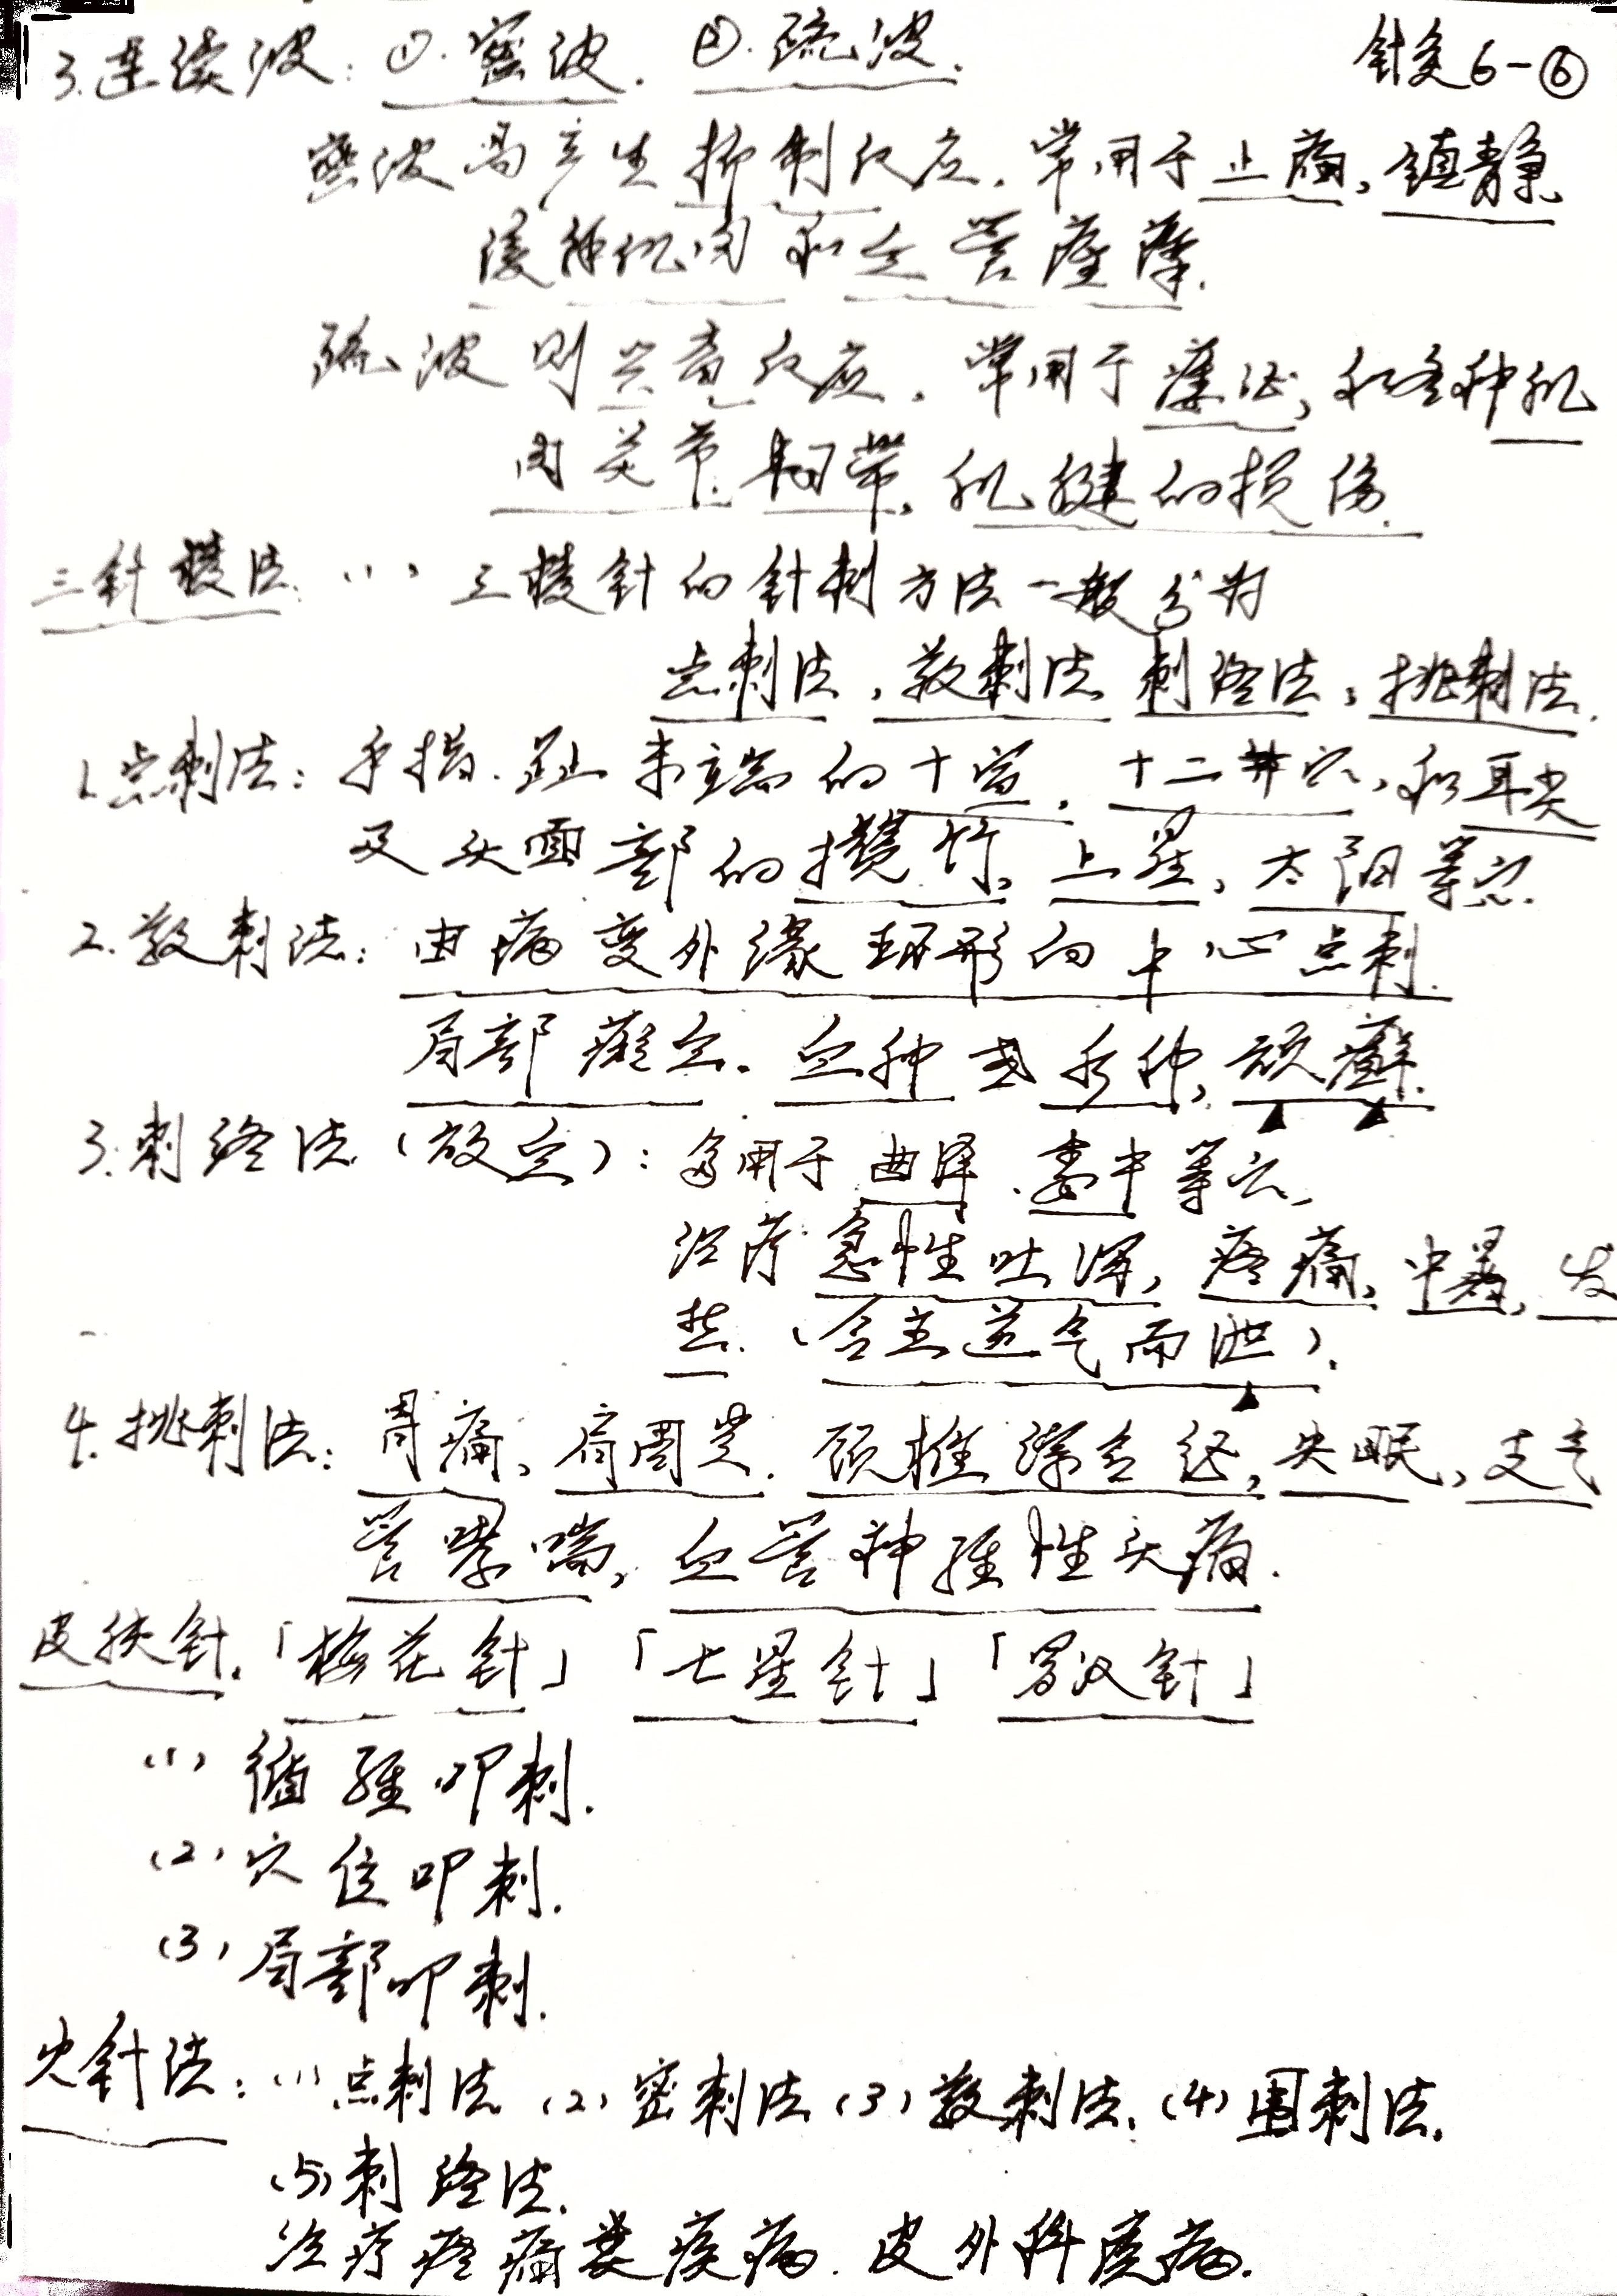 针灸6-⑥
3.连续波：①.密波. ②.疏波.
密波易产生抑制反应.常用于止痛、镇静、
缓解肌肉和血管痉挛.
疏波则兴奋反应.常用于痿证,和各种肌
肉关节.韧带、肌腱的损伤.
三针棱法:(1)三棱针的针刺方法一般分为
点刺法,散刺法 刺络法,挑刺法.
1.点刺法：手指.趾末端的十宣.十二井穴,和耳尖
及头面部的攒竹、上星,太阳等穴.
2.散刺法：由病变外缘环形向中心点刺.
局部瘀血.血肿或水肿,顽癣.
3.刺络法(放血)：多用于曲泽、委中等穴,
治疗急性吐泻,疼痛,中暑,发
热.(合主逆气而泄).
4.挑刺法：胃痛、肩周炎.颈椎综合征,失眠,支气
管哮喘,血管神经性头痛.
皮肤针.「梅花针」「七星针」「罗汉针」
(1)循经叩刺.
(2)穴位叩刺.
(3)局部叩刺.
火针法：(1)点刺法 (2)密刺法 (3)散刺法.(4)围刺法.
(5)刺络法.
治疗疼痛类疾病.皮外科疾病.